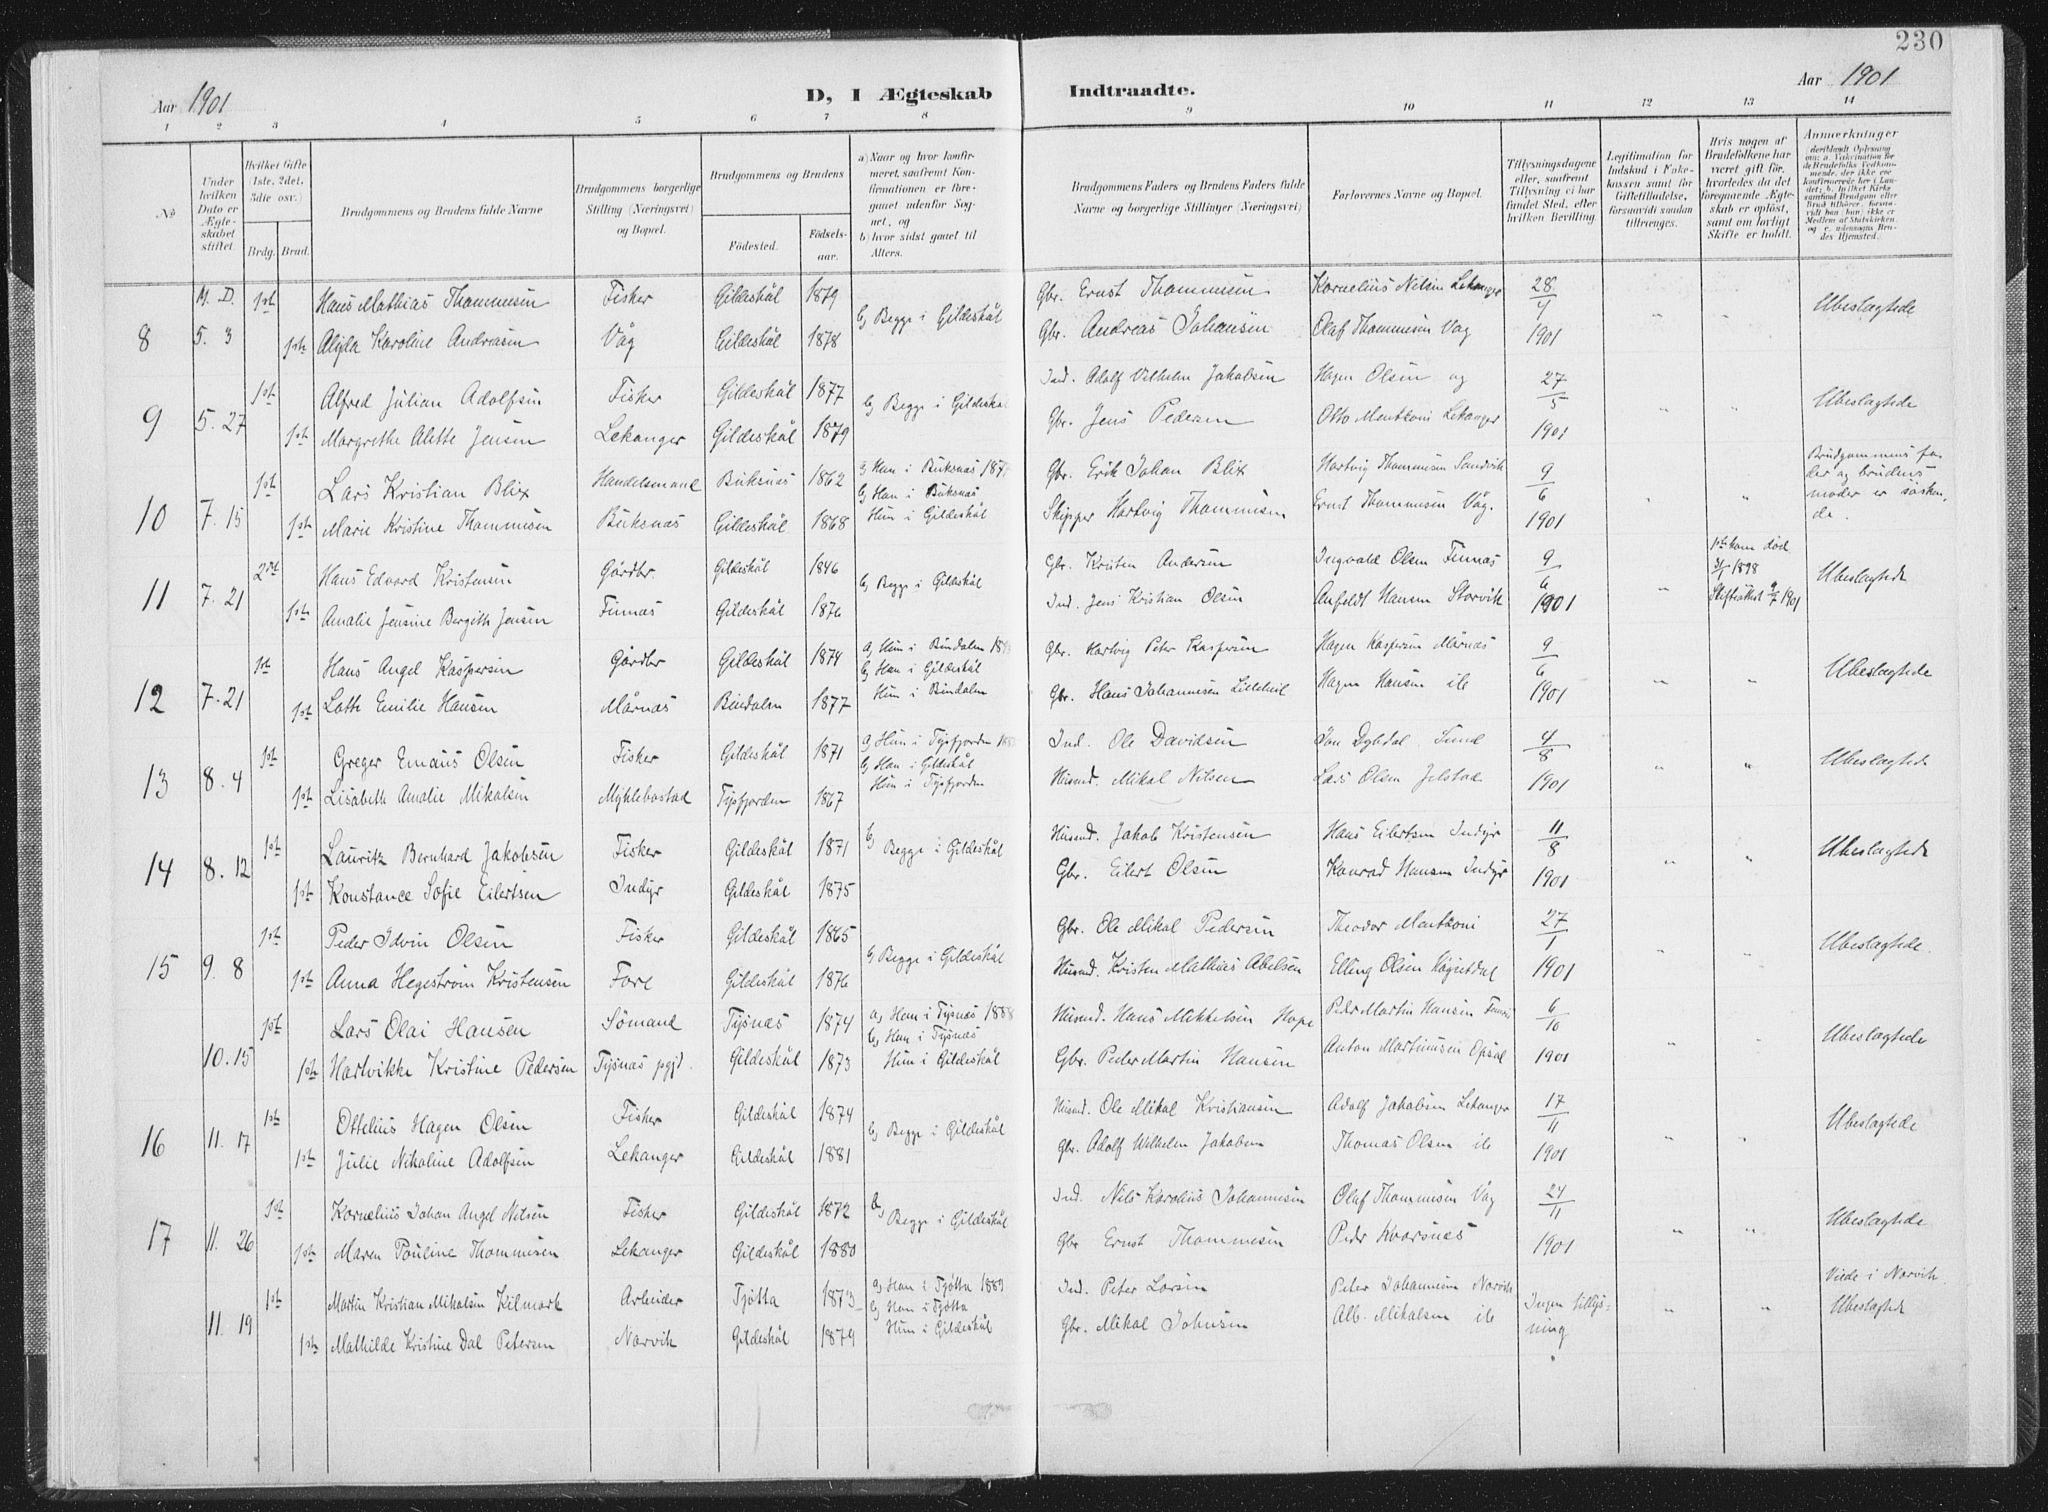 230
Aar 1901
D, I Ægteskab Indtraadte.
Aar 1901
1 2 3 4 5 6 7 8 9 10 11 12 13 14
№
Under hvilken Dato er Ægteskabet stiftet.
Hvilket Gifte 1ste, 2det, 3die osv.)
Brdg. Brud.
Brudgommens og Brudens fulde Navne
Brudgommens borgerlige Stilling (Næringsvei) og Bopæl.
Brudgommens og Brudens
Födested.
Födsels-aar.
a) Naar og hvor konfirmeret, saafremt Konfirmationen er foregaaet udenfor Sognet, og
b) hvor sidst gaaet til Alters.
Brudgommens Faders og Brudens Faders fulde Navne og borgerlige Stillinger (Næringsvei)
Forlovernes Navne og Bopæl.
Tillysningsdagene eller, saafremt Tillysning ei har fundet Sted, efter hvilken Bevilling.
Legitimation for Indskud i Enkekassen samt for Giftetilladelse, forsaavidt saadan tiltrænges.
Hvis nogen af Brudefolkene har været gift før, hvorledes da det foregaaende Ægteskab er opløst, samt om lovligt Skifte er holdt.
Anmerkninger
M. D. 1st Hans Mathias Thommesen Fisker Gildeskål 1879 b) Begge i Gildeskål Gbr. Ernst Thommesen Kornelius Nilsen Lekanger 28/4 " " Ubeslægtede
8 5. 3 1ste Alyda Karoline Andreasen Våg Gildeskål 1878 Gbr. Andreas Johansen Olaf Thommesen Vag 1901
1st Alfred Julian Adolfsen Fisker Gildeskål 1877 b) Begge i Gildeskål Ind. Adolf Vilhelm Jakobsen Hagen Olsen og 27/5 " " Ubeslægtede
9 5. 27 1st Margrethe Alette Jensen Lekanger Gildeskål 1879 Gbr. Jens Pedersen Otto Mentzoni Lekanger 1901
1st Lars Kristian Blix Handelsmand Buksnæs 1862 a) Han i Buksnæs b) Han i Buksnæs Gbr. Erik Johan Blix Hartvig Thommesen Sandvik 9/6 " " Brudgommens fader og brudens moder er søskende.
10 7. 15 1st Marie Kristine Thommesen Buksnæs Gildeskål 1868 Hun i Gildeskål Skipper Hartvig Thommesen Ernst Thommesen Våg. 1901
2det Hans Edvard Kristensen Gårdbr. Gildeskål 1846 b) Begge i Gildeskål Gbr. Kristen Andersen Ingvald Olsen Finnæs 9/6 " 1ste kone død 1898 Ubeslægtede
11 7. 21 1st Amalie Jensine Bergith Jensen Finnæs Gildeskål 1876 Ind. Jens Kristian Olsen Anfeldt Hansen Storvik 1901 Skifteattest 9/7 1901
1st Hans Angel Kaspersen Gårdbr Gildeskål 1874 a) Hun i Bindalen b) Han i Gildeskål Gbr. Hartvig Peter Kaspersen Hagen Kaspersen Mårnæs 9/6 " " Ubeslægtede
12 7. 21 1st Lotte Emilie Hansen Mårnæs Bindalen 1877 Hun i Bindalen Gbr. Hans Johannesen Hagen Hansen ib 1901
1st Greger Emaus Olsen Fisker Gildeskål 1871 a) Hun i Tysfjorden b) Han i Gildeskål Ind. Ole Davidsen Jon Dybdal Sund 4/8 " " Ubeslægtede
13 8. 4 1st Lisabeth Amalie Mikalsen Myklebostad Tysfjorden 1867 Hun i Tysfjorden Husmd. Mikal Nilsen Lars Olsen Jelstad 1901
1st Lauritz Bernhard Jakobsen Fisker Gildeskål 1871 b) Begge i Gildeskål Husmd. Jakob Kristensen Hans Eilertsen Indyr 11/8 " " Ubeslægtede
14 8. 12 1st Konstance Sofie Eilertsen Indyr Gildeskål 1875 Gbr. Eilert Olsen Konrad Hansen Indyr 1901
1st Peder Edvin Olsen Fisker Gildeskål 1865 b) Begge i Gildeskål Gbr. Ole Mikal Pedersen Theodor Mentzoni 27/1 " " Ubeslægtede.
15 9. 8 1st Anna Hegestrøm Kristensen Fore Gildeskål 1876 Husmd. Kristen Mathias Abelsen Elling Olsen Høgsetdal 1901
1st Lars Olai Hansen Sömand Tysnæs 1874 a) Han i Tysnæs 1888 b) Han i Tysnæs Husmd. Hans Mikkelsen Hope Peder Martin Hansen 6/10 " " Ubeslægtede
10. 15 1st Hartvikke Kristine Pedersen Tysnæs pgjd. Gildeskål 1873 Hun i Gildeskål Gbr. Peder Martin Hansen Anton Martinusen Opsal 1901
1st Ottelius Hagen Olsen Fisker Gildeskål 1874 b) Begge i Gildeskål Husmd. Ole Mikal Kristiansen Adolf Jakobsen Lekanger 17/11 " " Ubeslægtede
16 11. 17 1st Julie Nikoline Adolfsen Lekanger Gildeskål 1881 Gbr. Adolf Wilhelm Jakobsen Thomas Olsen ib 1901
1st Kornelius Johan Angel Nilsen Fisker Gildeskål 1872 b) Begge i Gildeskål Ind. Nils Karolius Johannesen Olaf Thommesen Våg 24/11 " " Ubeslægtede
17 11. 26 1st Maren Pouline Thommesen Lekanger Gildeskål 1880 Gbr Ernst Thommesen Peder Kvarsnæs 1901
1st Martin Kristian Mikalsen Kilmork Arbeider Tjøtta 1873 a) Han i Tjøtta 1889 b) Han i Tjøtta Ind. Peter Larsen Peter Johannesen Narvik Ingen tillysning " " Viede i Narvik. Ubeslægtede
11. 19 1st Mathilde Kristine Dal Petersen Narvik Gildeskål 1879 Hun i Gildeskål Gbr. Mikal Johnsen Alb. Mikalsen ib